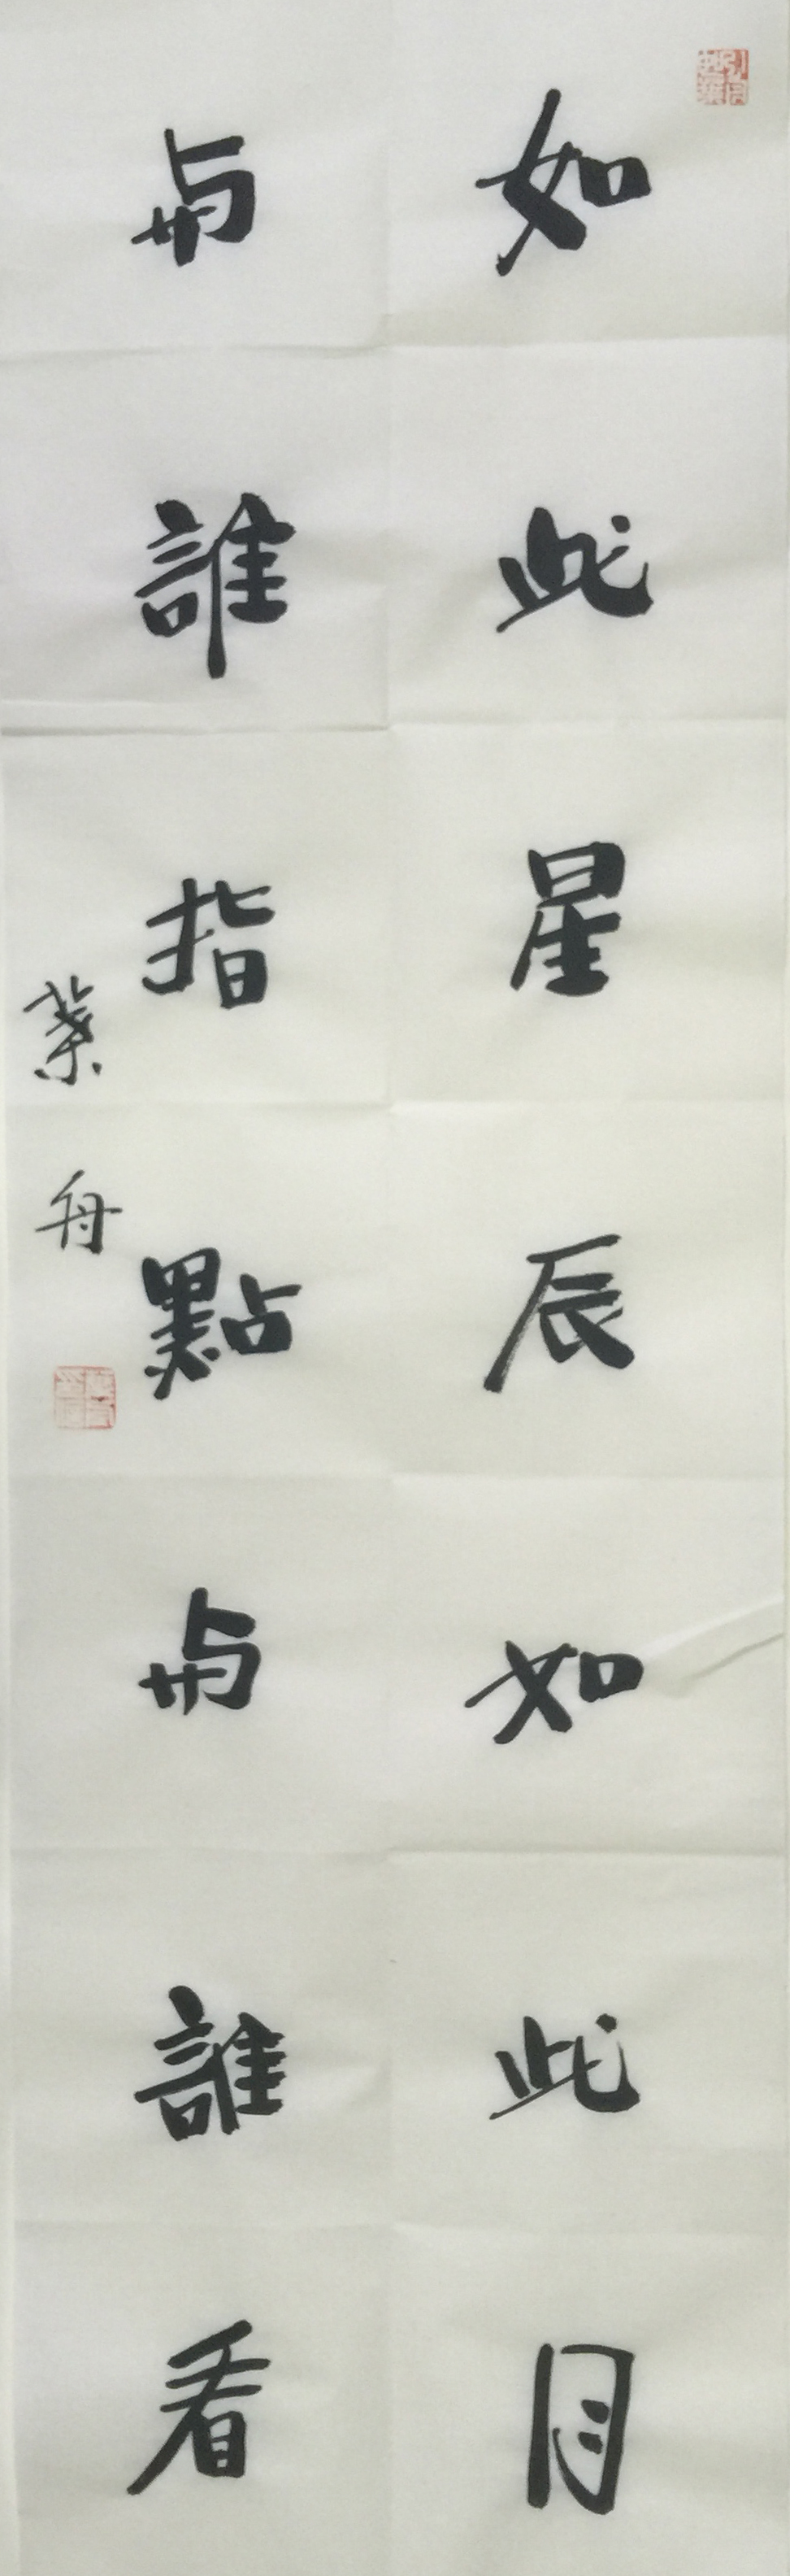 如此星辰如此月
与誰指點与誰看
葉舟